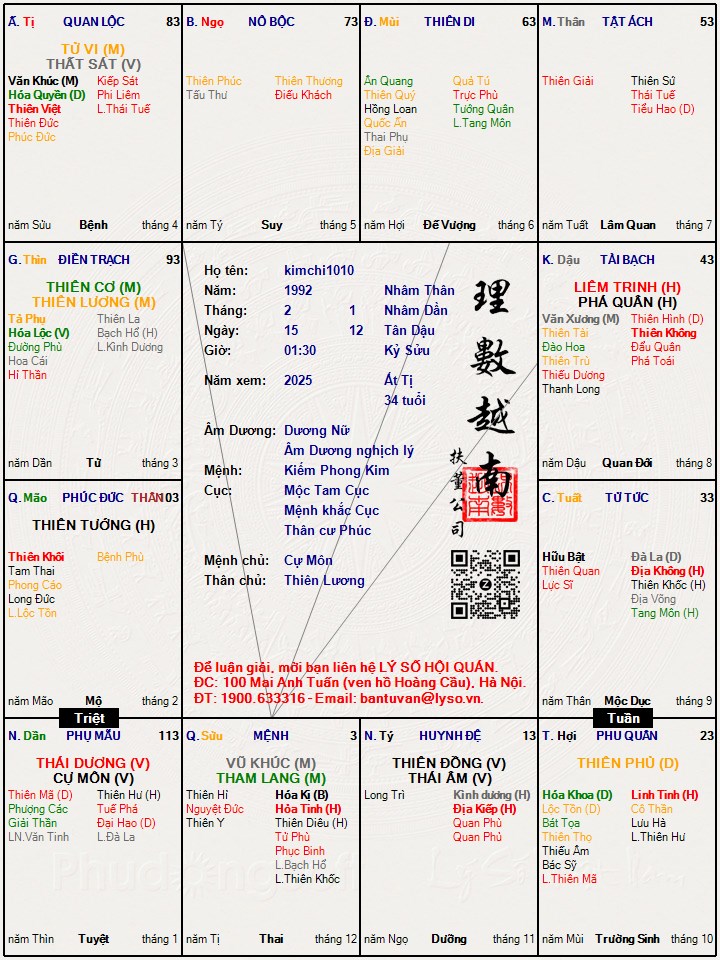 Ấ. Tị QUAN LỘC 83
TỬ VI (M)
THẤT SÁT (V)
Văn Khúc (M) Kiếp Sát
Hóa Quyền (D) Phi Liêm
Thiên Việt L.Thái Tuế
Thiên Đức
Phúc Đức
năm Sửu Bệnh tháng 4
B. Ngọ NÔ BỘC 73
Thiên Phúc Thiên Thương
Tấu Thư Điếu Khách
năm Tý Suy tháng 5
Đ. Mùi THIÊN DI 63
Ân Quang Quả Tú
Thiên Quý Trực Phù
Hồng Loan Tướng Quân
Quốc Ấn L.Tang Môn
Thai Phụ
Địa Giải
năm Hợi Đế Vượng tháng 6
M. Thân TẬT ÁCH 53
Thiên Giải Thiên Sứ
Thái Tuế
Tiểu Hao (D)
năm Tuất Lâm Quan tháng 7
G. Thìn ĐIỀN TRẠCH 93
THIÊN CƠ (M)
THIÊN LƯƠNG (M)
Tả Phụ Thiên La
Hóa Lộc (V) Bạch Hổ (H)
Đường Phù L.Kình Dương
Hoa Cái
Hỉ Thần
năm Dần Tử tháng 3
Họ tên: kimchi1010
Năm: 1992 Nhâm Thân
Tháng: 2 1 Nhâm Dần
Ngày: 15 12 Tân Dậu
Giờ: 01:30 Kỷ Sửu
Năm xem: 2025 Ất Tị
34 tuổi
Âm Dương: Dương Nữ
Âm Dương nghịch lý
Mệnh: Kiếm Phong Kim
Cục: Mộc Tam Cục
Mệnh khắc Cục
Thân cư Phúc
Mệnh chủ: Cự Môn
Thân chủ: Thiên Lương
理數越南
扶董公司
Để luận giải, mời bạn liên hệ LÝ SỐ HỘI QUÁN.
ĐC: 100 Mai Anh Tuấn (ven hồ Hoàng Cầu), Hà Nội.
ĐT: 1900.633316 - Email: bantuvan@lyso.vn.
K. Dậu TÀI BẠCH 43
LIÊM TRINH (H)
PHÁ QUÂN (H)
Văn Xương (M) Thiên Hình (D)
Thiên Tài Thiên Không
Đào Hoa Đẩu Quân
Thiên Trù Phá Toái
Thiếu Dương
Thanh Long
năm Dậu Quan Đới tháng 8
Q. Mão PHÚC ĐỨC THÂN 103
THIÊN TƯỚNG (H)
Thiên Khôi Bệnh Phù
Tam Thai
Phong Cáo
Long Đức
L.Lộc Tồn
năm Mão Mộ tháng 2
C. Tuất TỬ TỨC 33
Hữu Bật Đà La (D)
Thiên Quan Địa Không (H)
Lực Sĩ Thiên Khốc (H)
Địa Võng
Tang Môn (H)
năm Thân Mộc Dục tháng 9
Triệt
Tuần
N. Dần PHỤ MẪU 113
THÁI DƯƠNG (V)
CỰ MÔN (V)
Thiên Mã (D) Thiên Hư (H)
Phượng Các Tuế Phá
Giải Thần Đại Hao (D)
LN.Văn Tinh L.Đà La
năm Thìn Tuyệt tháng 1
Q. Sửu MỆNH 3
VŨ KHÚC (M)
THAM LANG (M)
Thiên Hỉ Hóa Kị (B)
Nguyệt Đức Hỏa Tinh (H)
Thiên Y Thiên Diêu (H)
Tử Phù
Phục Binh
L.Bạch Hổ
L.Thiên Khốc
năm Tị Thai tháng 12
N. Tý HUYNH ĐỆ 13
THIÊN ĐỒNG (V)
THÁI ÂM (V)
Long Trì Kình dương (H)
Địa Kiếp (H)
Quan Phù
Quan Phủ
năm Ngọ Dưỡng tháng 11
T. Hợi PHU QUÂN 23
THIÊN PHỦ (D)
Hóa Khoa (D) Linh Tinh (H)
Lộc Tồn (D) Cô Thần
Bát Tọa Lưu Hà
Thiên Thọ L.Thiên Hư
Thiếu Âm
Bác Sỹ
L.Thiên Mã
năm Mùi Trường Sinh tháng 10